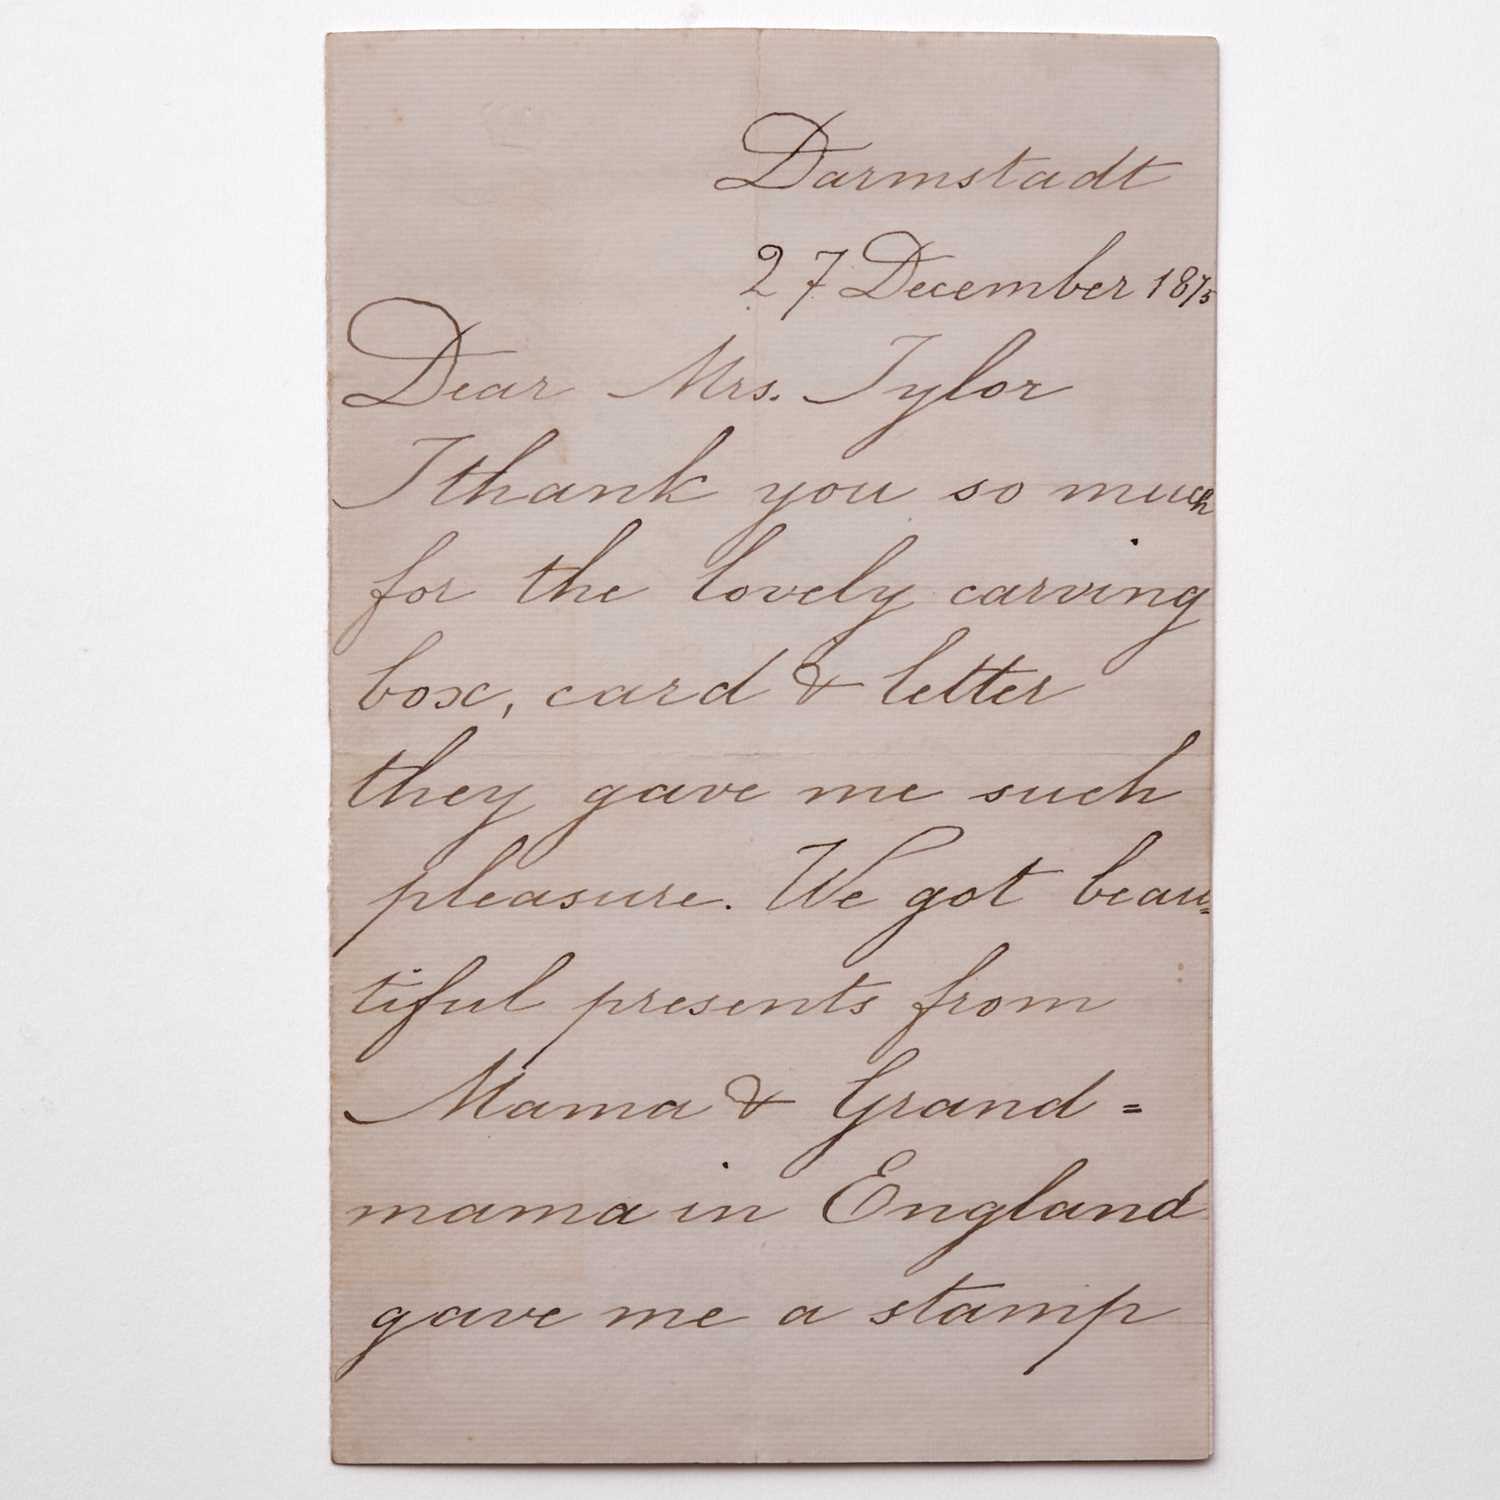 Darmstadt
27 December 1875
Dear Mrs. Tylor
I thank you so much
for the lovely carving
box, card & letter
they gave me such
pleasure. We got beau=
tiful presents from
Mama & Grand=
mama in England
gave me a stamp